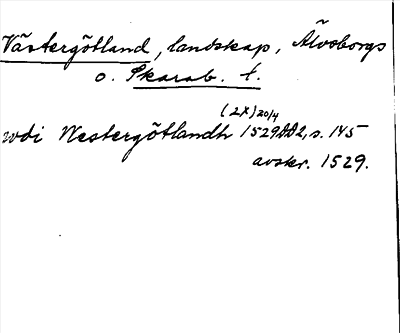 Västergötland, landskap, Älvsborgs
o. Skarab. t.
(2x) 20/4
wdi Westergötlandh 1529 A2, s. 145
avskr. 1529.